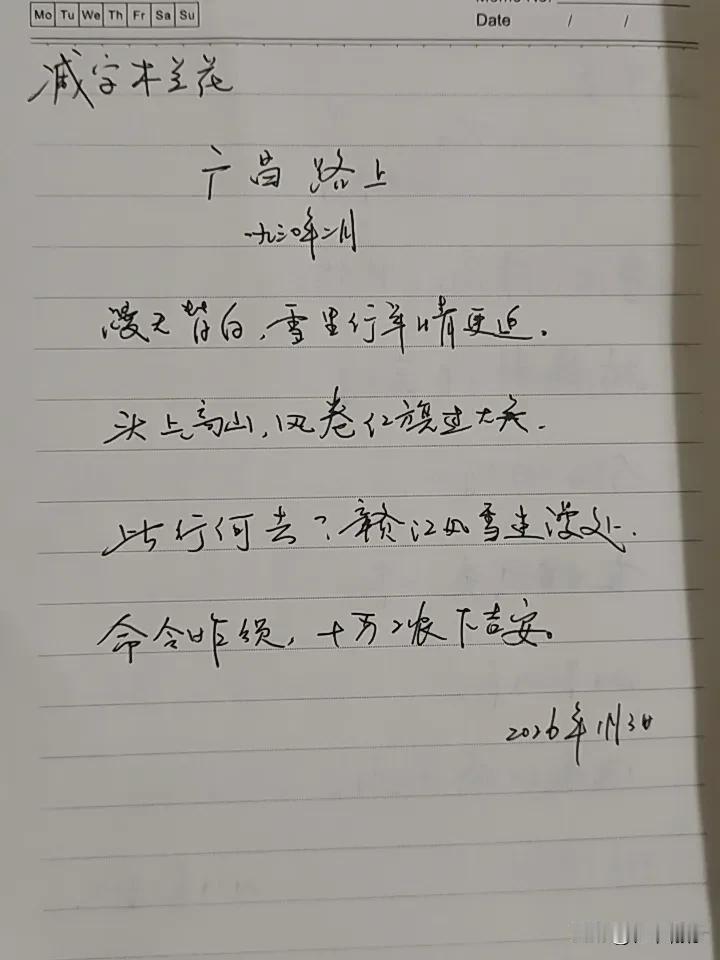 Mo Tu We Th Fr Sa Su
Memo No.
Date / /
减字木兰花
广昌路上
一九三〇年二月
漫天皆白,雪里行军情更迫.
头上高山,风卷红旗过大关.
此行何去?赣江风雪迷漫处.
命令昨颁,十万工农下吉安。
2026年1月3日